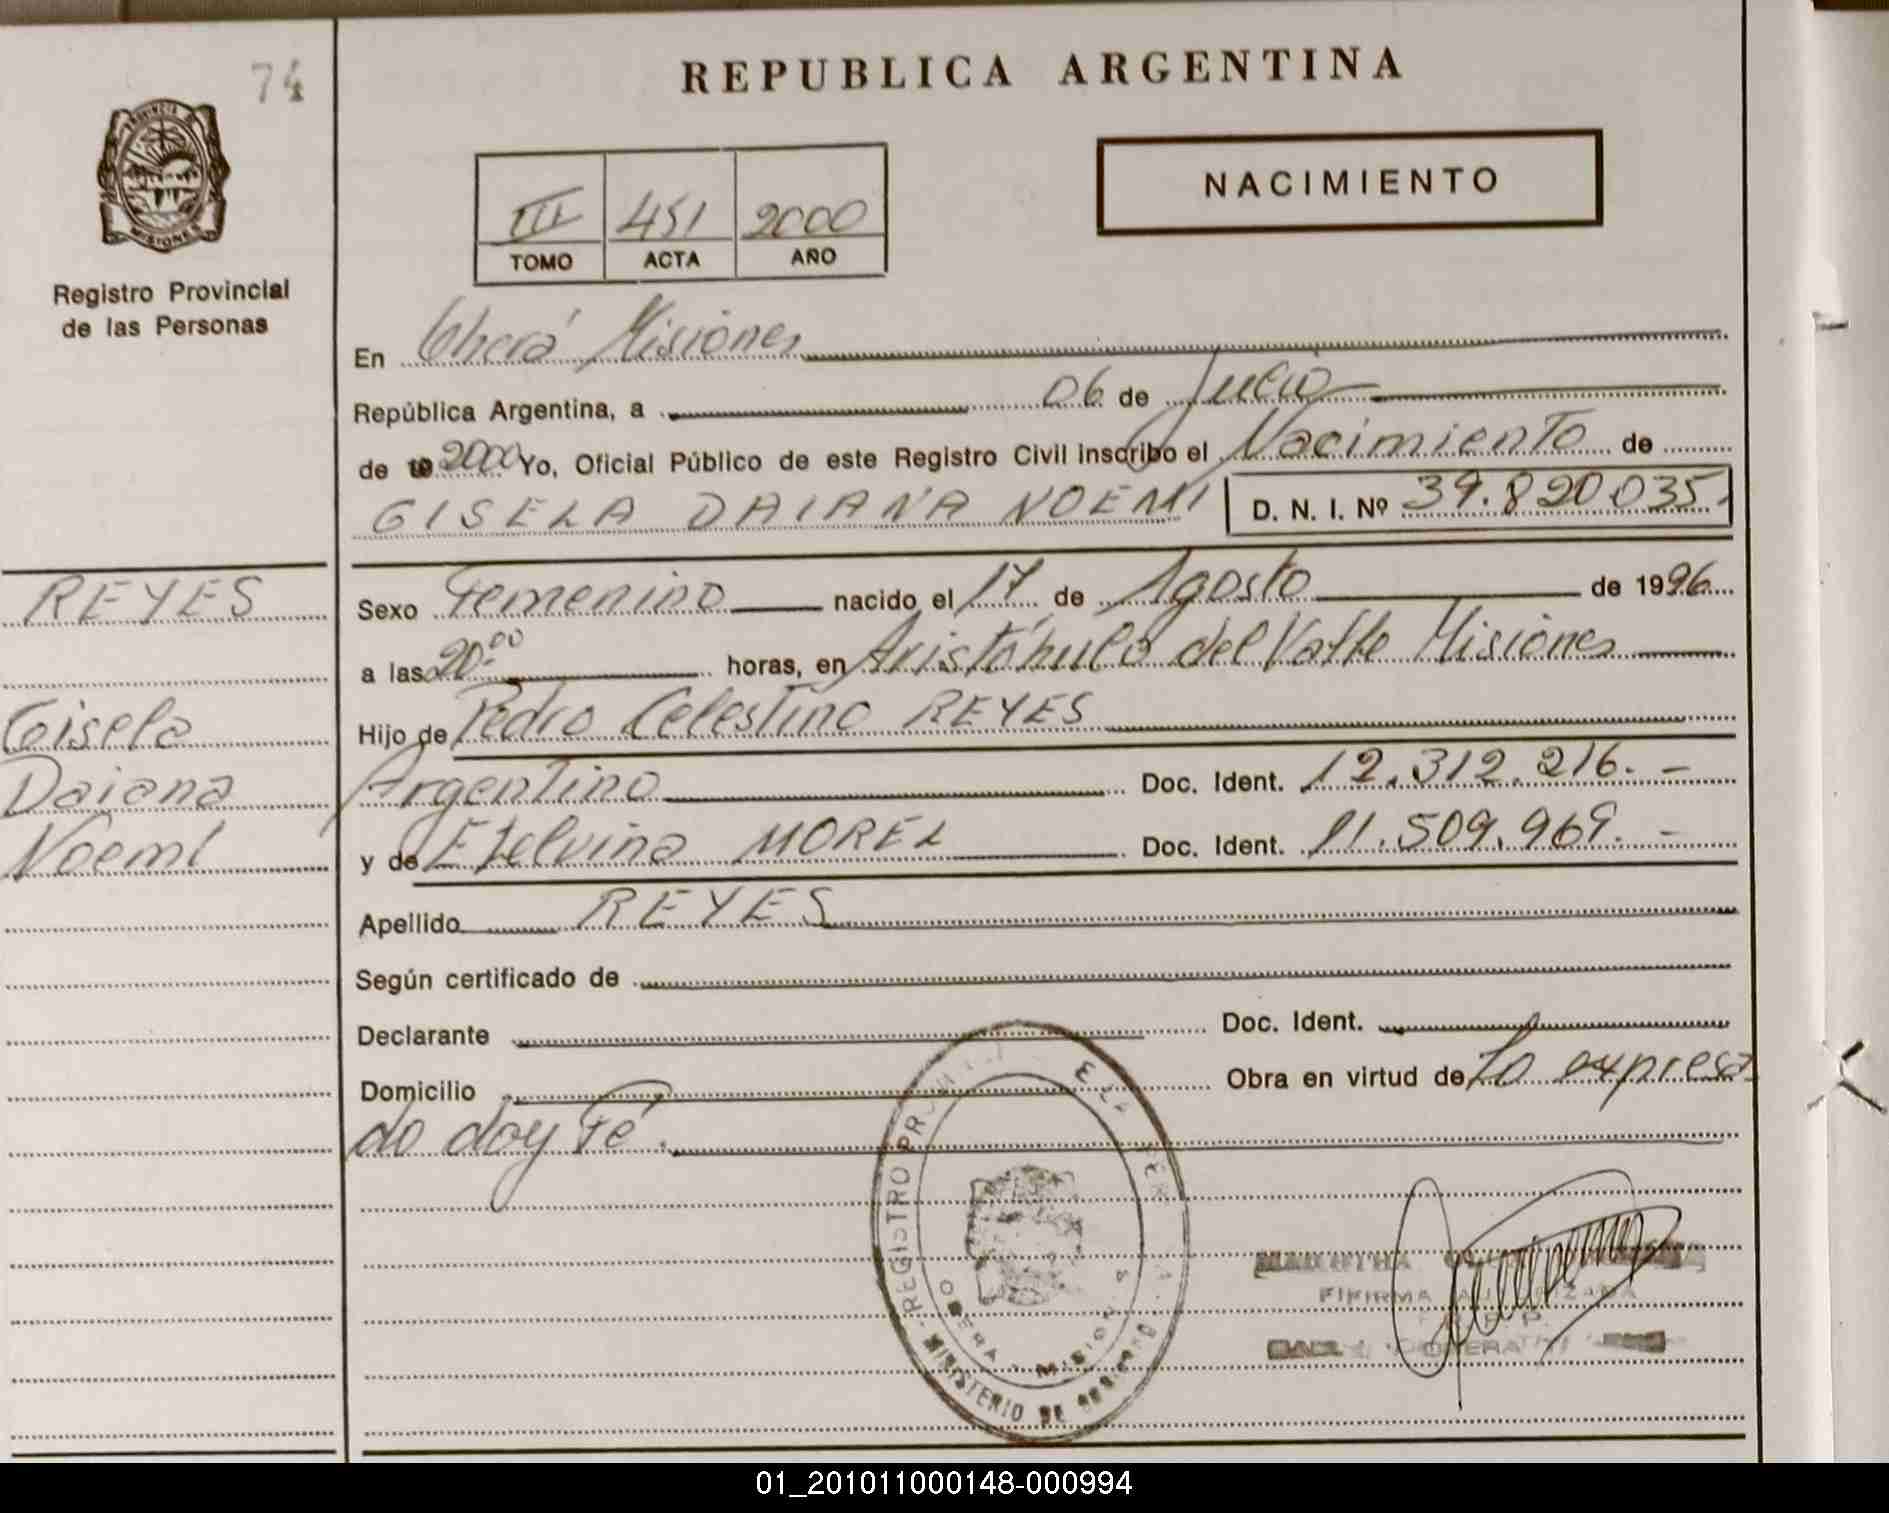 74
REPUBLICA ARGENTINA
PROVINCIA
MISIONES
Registro Provincial
de las Personas
NACIMIENTO
III 451 2000
TOMO ACTA AÑO
En Oberá Misiones
República Argentina, a 06 de Julio
de 19 2000 Yo, Oficial Público de este Registro Civil inscribo el Nacimiento de
GISELA DAIANA NOEMI D. N. I. Nº 39.820.035.
REYES
Sexo Femenino nacido el 17 de Agosto de 1996
a las 20.00 horas, en Aristóbulo del Valle Misiones
Gisela
Daiana
Noemi
Hijo de Pedro Celestino REYES
Argentino Doc. Ident. 12.312.216.-
y de Etelvina MOREL Doc. Ident. 11.509.969.-
Apellido REYES
Según certificado de
Declarante Doc. Ident.
Domicilio Obra en virtud de Lo expresa
do doy Fé.
REGISTRO
MINISTERIO DE
OBERA
FIRMA AUTORIZADA
01_201011000148-000994